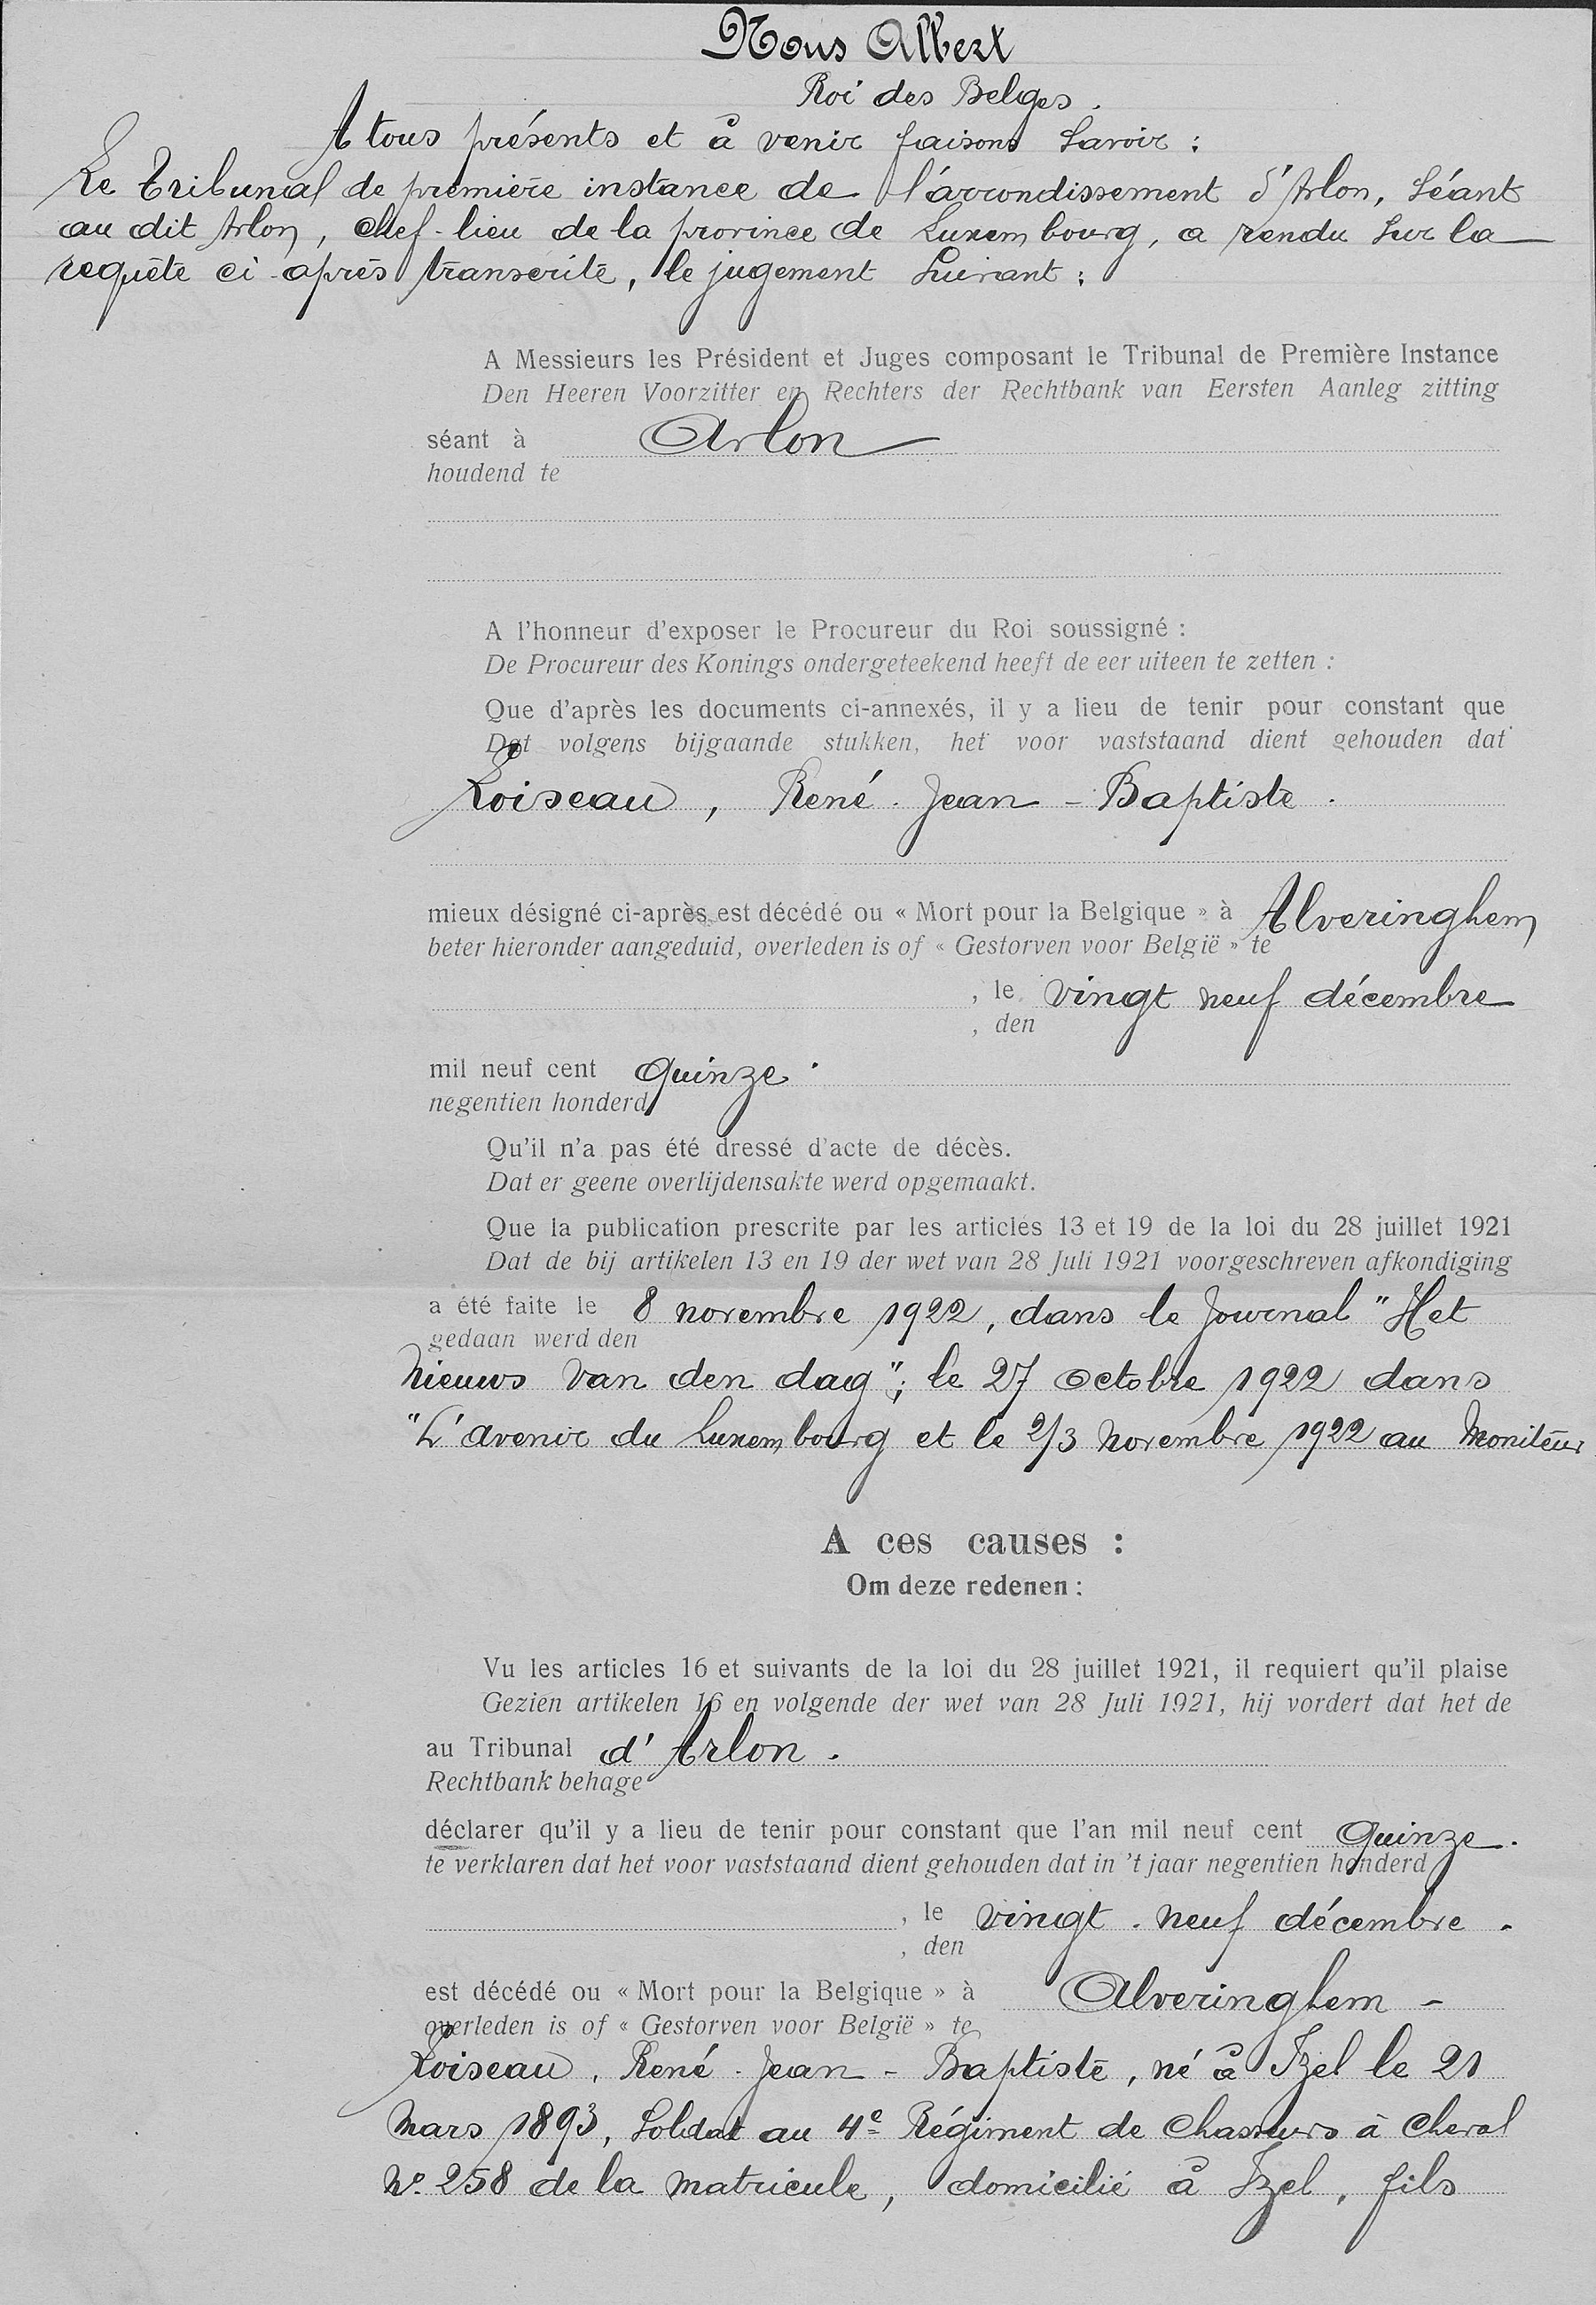 Nous Albert
Roi des Belges.
A tous présents et à venir faisons savoir :
Le Tribunal de première instance de l'arrondissement d'Arlon, séant
au dit Arlon, chef-lieu de la province de Luxembourg, a rendu sur la
requête ci-après transcrite, le jugement suivant :
A Messieurs les Président et Juges composant le Tribunal de Première Instance
Den Heeren Voorzitter en Rechters der Rechtbank van Eersten Aanleg zitting
séant à Arlon
houdend te
A l'honneur d'exposer le Procureur du Roi soussigné :
De Procureur des Konings ondergeteekend heeft de eer uiteen te zetten :
Que d'après les documents ci-annexés, il y a lieu de tenir pour constant que
Dat volgens bijgaande stukken, het voor vaststaand dient gehouden dat
Loiseau, René-Jean-Baptiste.
mieux désigné ci-après est décédé ou « Mort pour la Belgique » à Alveringhem
beter hieronder aangeduid, overleden is of « Gestorven voor België » te
, le vingt neuf décembre
, den
mil neuf cent quinze.
negentien honderd
Qu'il n'a pas été dressé d'acte de décès.
Dat er geene overlijdensakte werd opgemaakt.
Que la publication prescrite par les articles 13 et 19 de la loi du 28 juillet 1921
Dat de bij artikelen 13 en 19 der wet van 28 Juli 1921 voorgeschreven afkondiging
a été faite le 8 novembre 1922, dans le Journal "Het
gedaan werd den
Nieuws van den dag"; le 27 octobre 1922 dans
"L'avenir du Luxembourg et le 2/3 novembre 1922 au Moniteur
A ces causes :
Om deze redenen :
Vu les articles 16 et suivants de la loi du 28 juillet 1921, il requiert qu'il plaise
Gezien artikelen 16 en volgende der wet van 28 Juli 1921, hij vordert dat het de
au Tribunal d'Arlon.
Rechtbank behage
déclarer qu'il y a lieu de tenir pour constant que l'an mil neuf cent quinze.
te verklaren dat het voor vaststaand dient gehouden dat in 't jaar negentien honderd
, le vingt-neuf décembre.
, den
est décédé ou « Mort pour la Belgique » à Alveringhem -
overleden is of « Gestorven voor België » te
Loiseau, René-Jean-Baptiste, né à Izel le 21
mars 1893, soldat au 4e Régiment de Chasseurs à Cheval
No 258 de la matricule, domicilié à Izel, fils